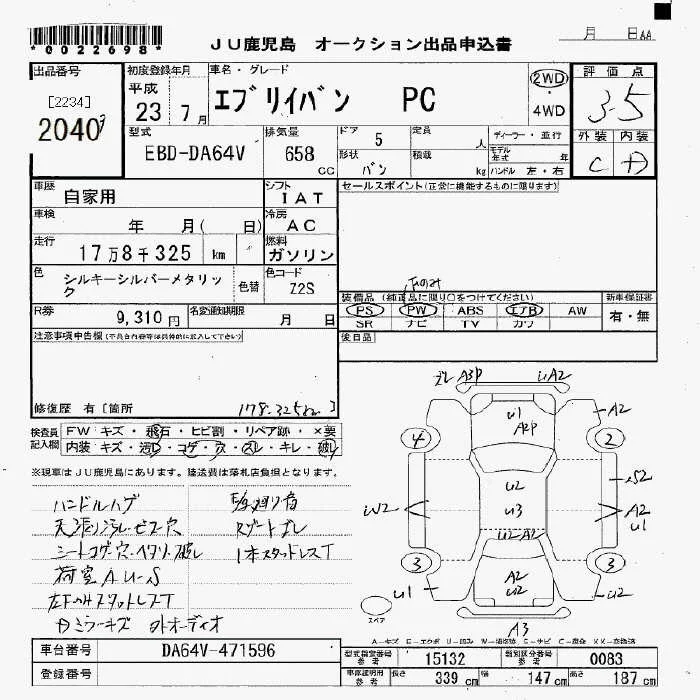 *0022698*
JU鹿児島 オークション出品申込書
月 日AA
出品番号
[2234]
2040
初度登録年月
平成
23 7月
車名・グレード
エブリイバン PC
2WD
・
4WD
評価点
3.5
外装 内装
C D
型式
EBD-DA64V
排気量
658
CC
ドア 5
形状 バン
定員 人
積載 kg
ディーラー・並行
モデル年式 年
ハンドル 左・右
車歴
自家用
シフト
IAT
車検
年 月( 日)
冷房
AC
走行
17万8千325 km
燃料
ガソリン
色
シルキーシルバーメタリック
色替
色コード
Z2S
R券
9,310円
名変通知期限
月 日
セールスポイント(正常に機能するものに限ります)
装備品(純正品に限り○をつけてください)
PS PW ABS エアB AW
SR ナビ TV カワ
新車保証書
有・無
後日品
注意事項申告欄(不具合内容等は具体的に記入して下さい)
修復歴 有[箇所 178.325km ]
検査員記入欄
FW キズ・飛石・ヒビ割・リペア跡・×要
内装 キズ・汚レ・コゲ・穴・スレ・キレ・破レ
※現車はJU鹿児島にあります。陸送費は落札店負担となります。
ハンドルハゲ
天張り汚レ・ビス穴
シートコゲ・穴・ヘタリ・破レ
1本スタッドレスT
荷室AU-S
左下のみスタッドレスT
Dミラーキズ 外オーディオ
A3P
A2
U1
A2P
4
2
A2
S2
W2
U2
U3
A2
U1
U2 A2
3
3
U1
A2
U2
U2
A3
スペア
車台番号
DA64V-471596
登録番号
型式指定番号
参考
15132
類別区分番号
参考
0083
車体証明用
参考
長さ 339 cm
幅 147 cm
高さ 187 cm